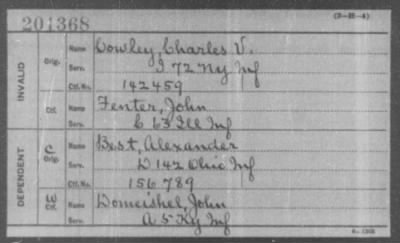 201368
(3-25-4)
INVALID
Orig.
Name Cowley, Charles V.
Serv. I 72 Ny Inf
Ctf. No. 142459
Ctf.
Name Fenter, John
Serv. C 63 Ill Inf
DEPENDENT
C
Orig.
Name Best, Alexander
Serv. D 142 Ohio Inf
Ctf. No. 156789
W
Ctf.
Name Domeishel, John
Serv. A 5 Ky Inf